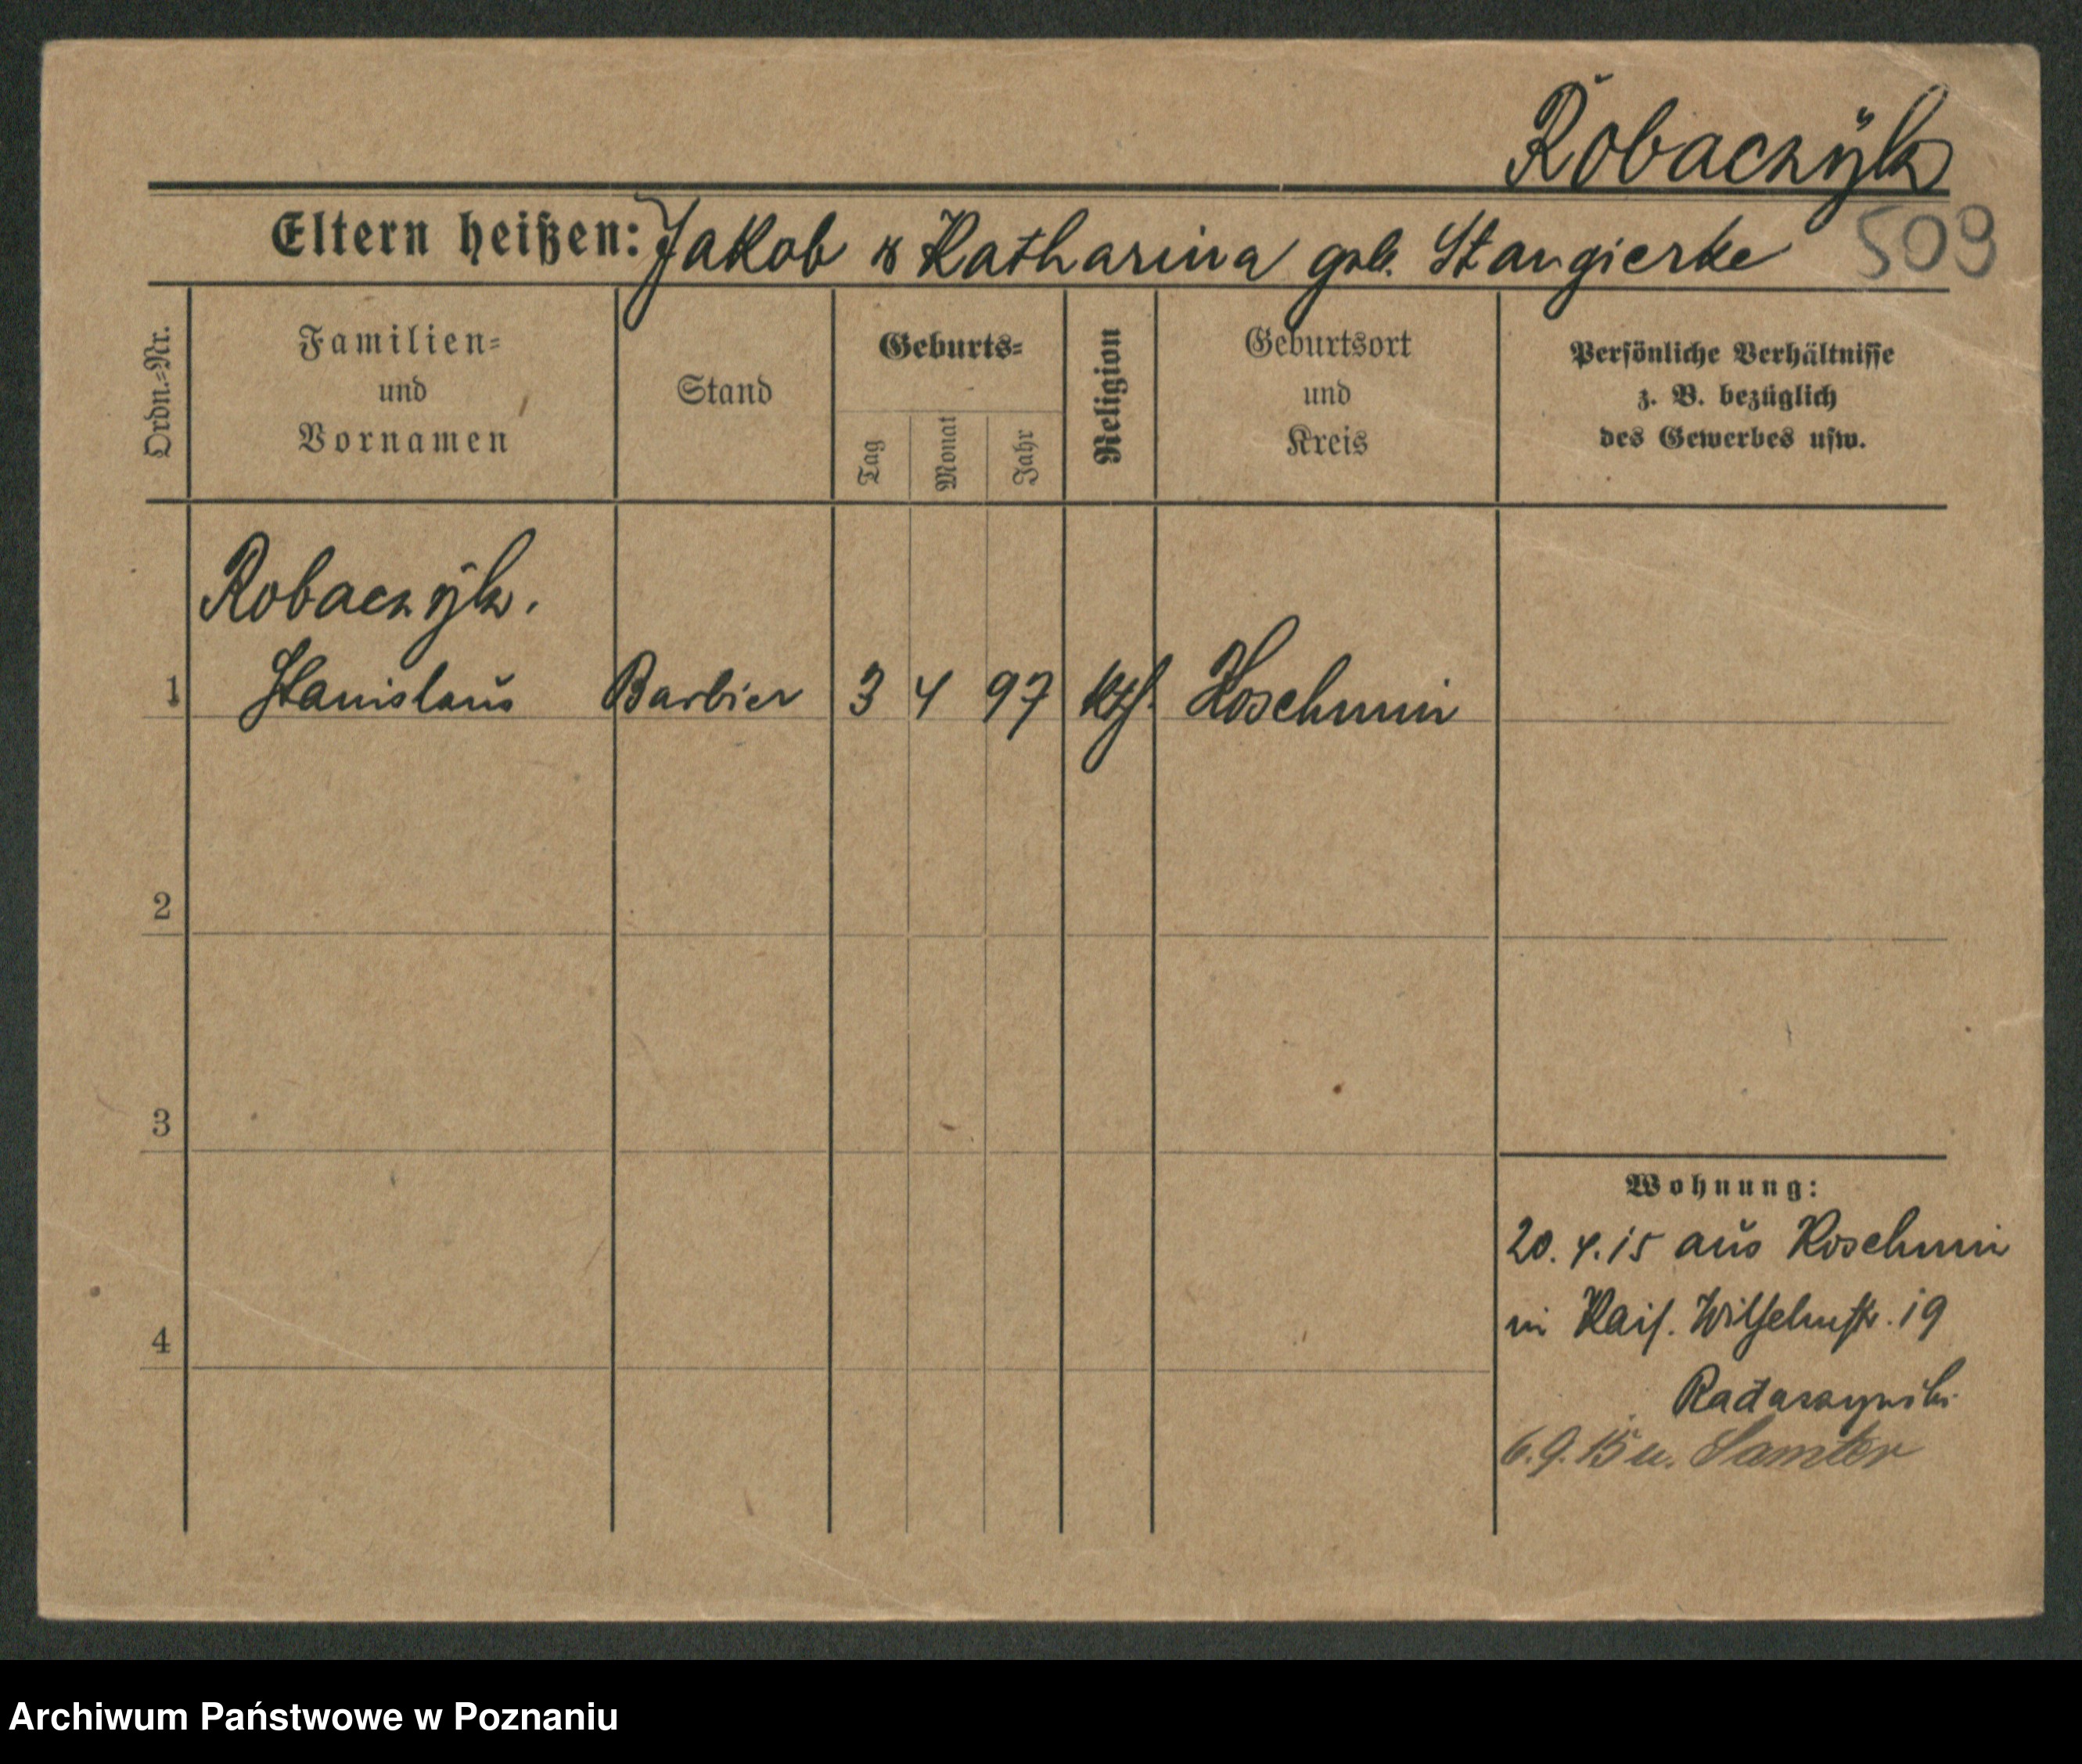 Robaczÿk
Eltern heißen: Jakob & Katharina geb. Stangierke 509
Ordn.-Nr.
Familien-
und
Vornamen
Stand
Geburts-
Tag
Monat
Jahr
Religion
Geburtsort
und
Kreis
Persönliche Verhältnisse
z. B. bezüglich
des Gewerbes usw.
Robaczÿk.
1 Stanislaus Barbier 3 4 97 kth. Koschmin
2
3
4
Wohnung:
20.4.15 aus Koschmin
in Kais. Wilhelmstr. 19
6.9.15 u. Samter
Archiwum Państwowe w Poznaniu